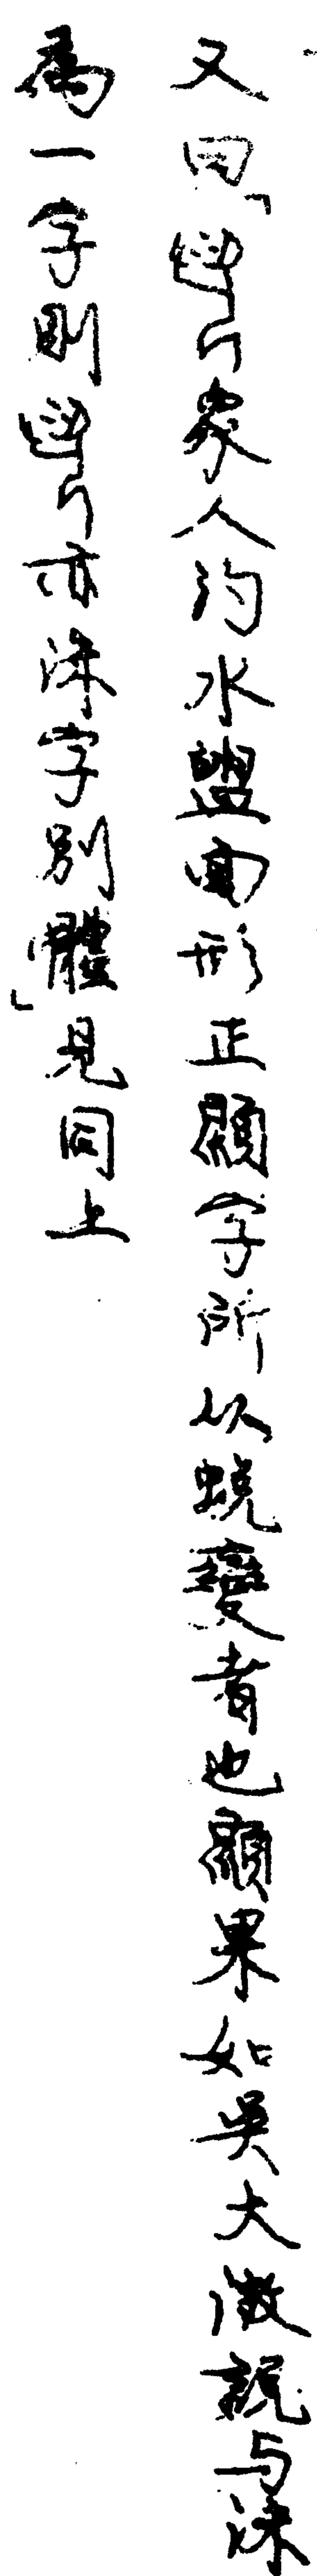 又曰「象人沟水盥面形正顯字所以蜕變者也顯果如吳大澂說与沬
爲一字則亦沬字別體」見同上